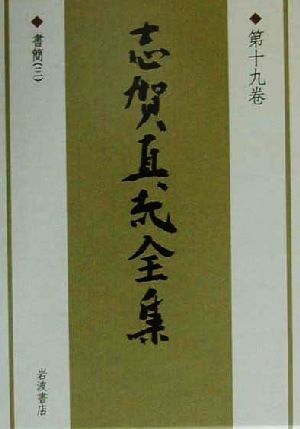 第十九巻
志賀直哉全集
書簡(三)
岩波書店